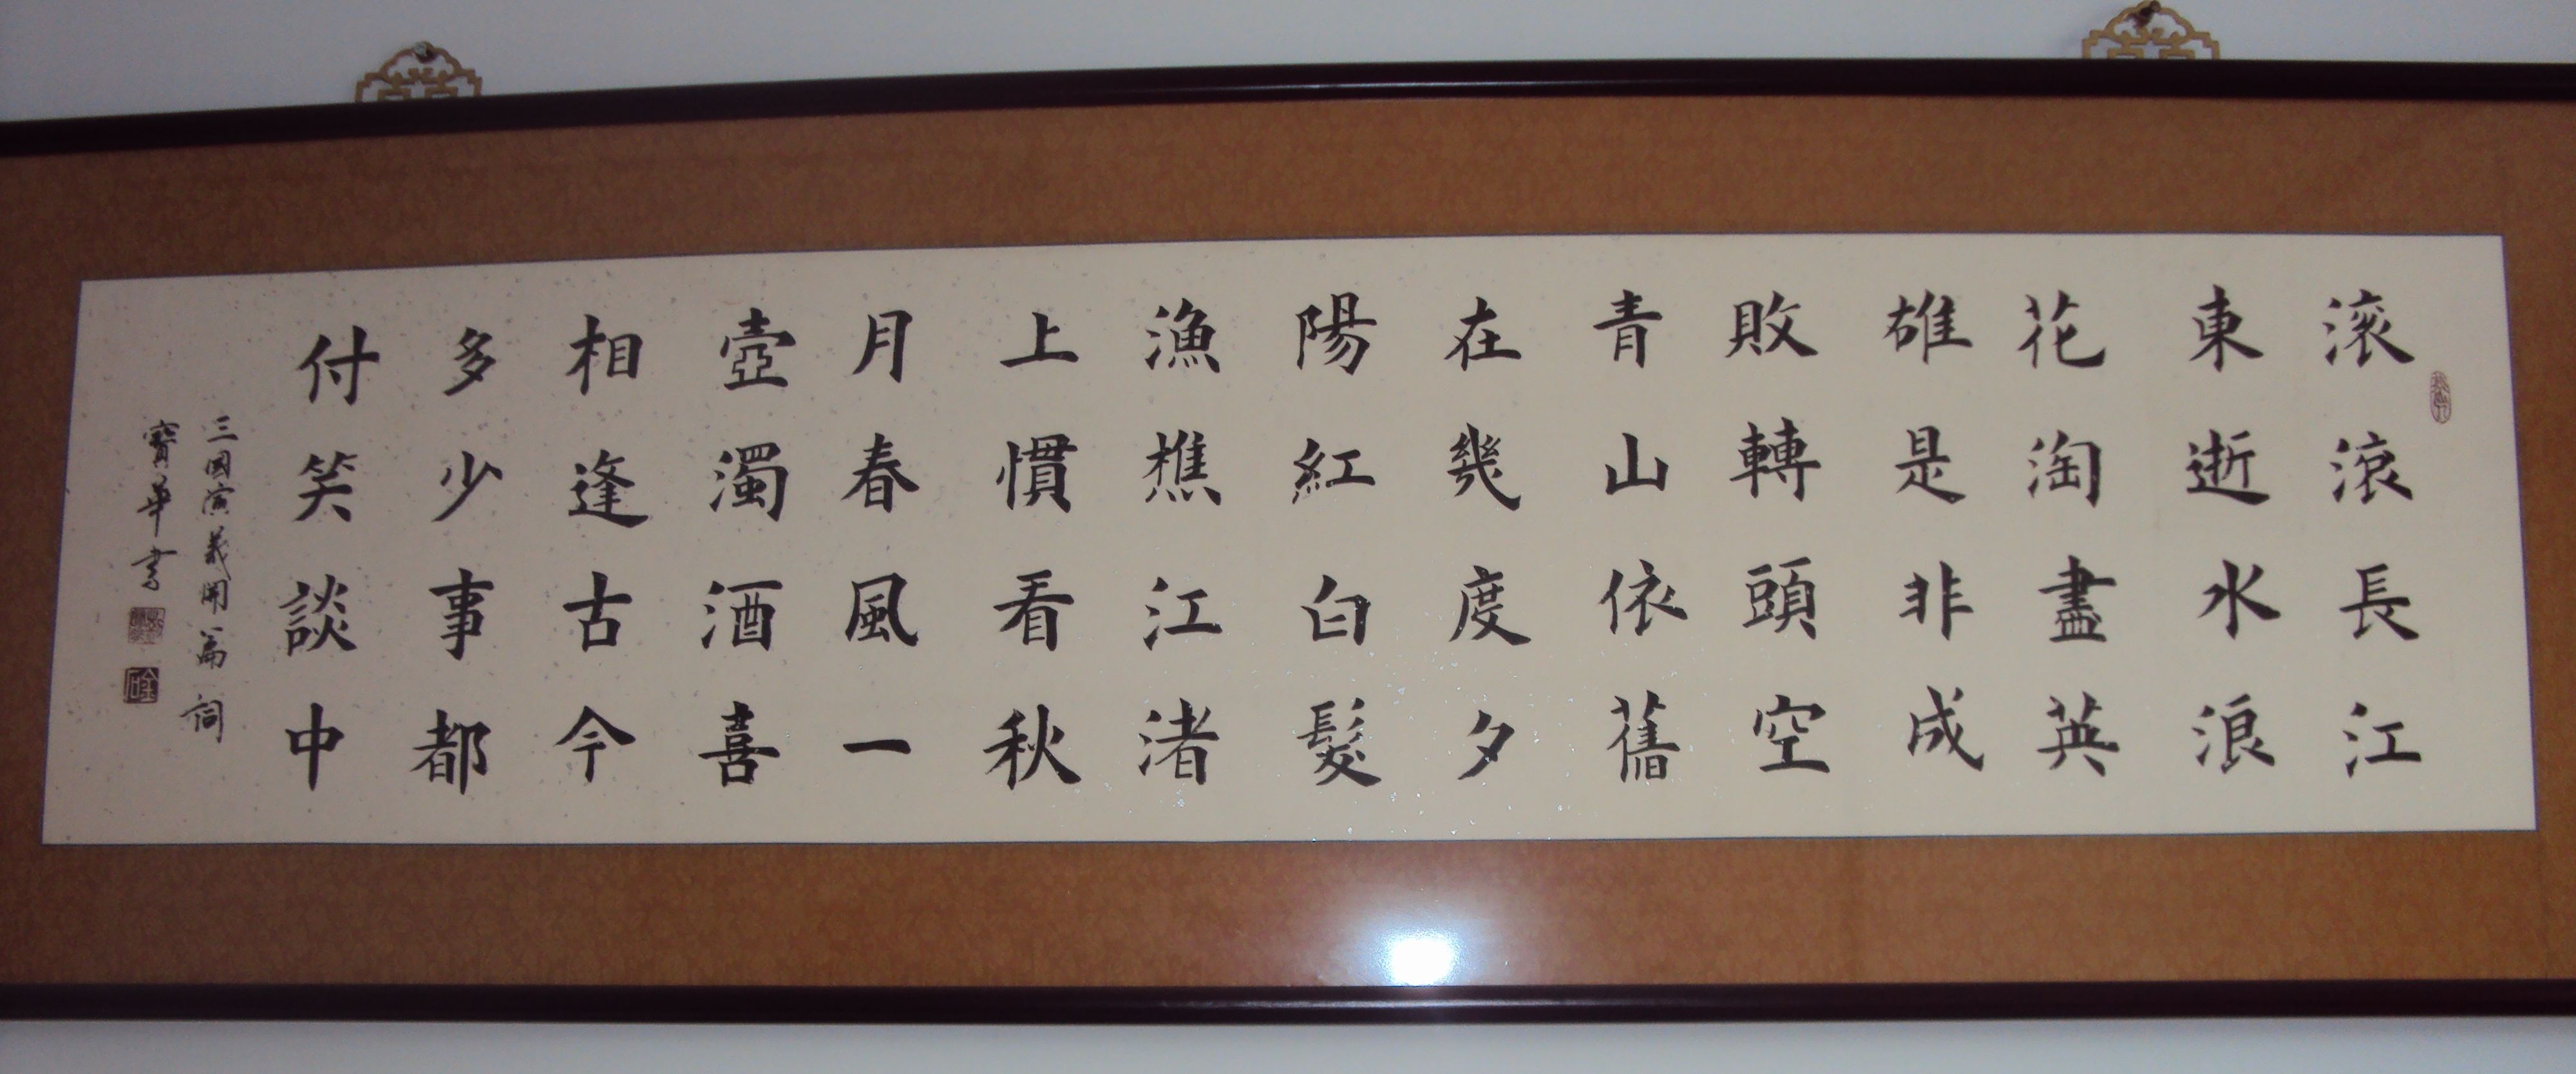 滚滚長江
東逝水浪
花淘盡英
雄是非成
敗轉頭空
青山依舊
在幾度夕
陽紅白髮
漁樵江渚
上慣看秋
月春風一
壺濁酒喜
相逢古今
多少事都
付笑談中
三國演義開篇詞
寶華書